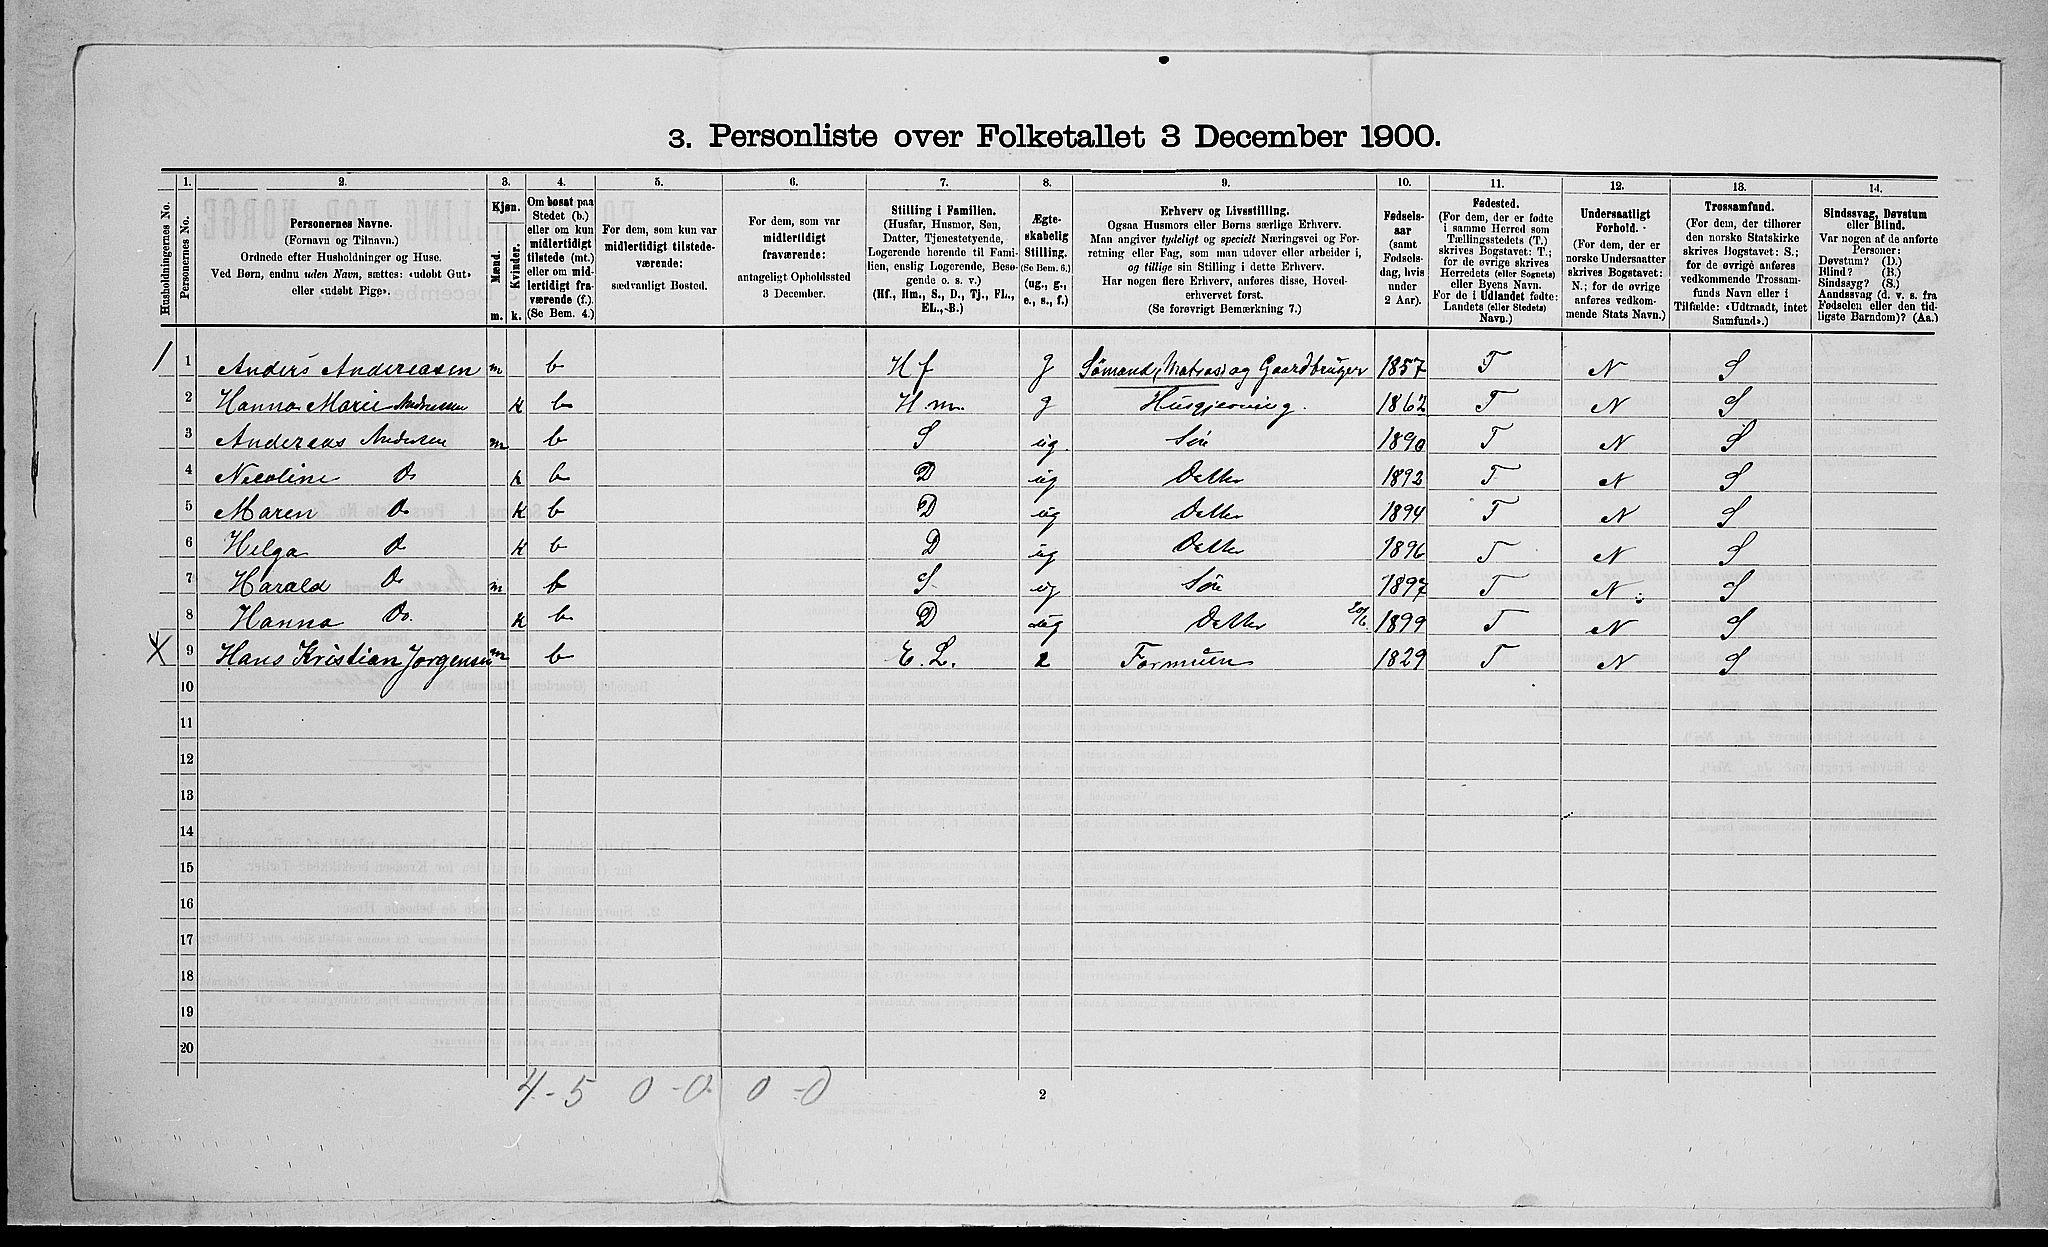 3. Personliste over Folketallet 3 December 1900.
Husholdningernes No.
1. Personernes No.
2. Personernes Navne.
(Fornavn og Tilnavn.)
Ordnede efter Husholdninger og Huse.
Ved Børn, endnu uden Navn, sættes: «udøbt Gut»
eller «udøbt Pige».
3. Kjøn.
Mænd. m.
Kvinder. k.
4. Om bosat paa
Stedet (b.)
eller om kun
midlertidigt
tilstede (mt.)
eller om mid-
lertidigt fra-
værende (f.).
(Se Bem. 4.)
5. For dem, som kun var
midlertidigt tilstede-
værende:
sædvanligt Bosted.
6. For dem, som var
midlertidigt
fraværende:
antageligt Opholdssted
3 December.
7. Stilling i Familien.
(Husfar, Husmor, Søn,
Datter, Tjenestetyende,
Logerende hørende til Fami-
lien, enslig Logerende, Besø-
gende o. s. v.)
(Hf., Hm., S., D., Tj., FL.,
EL., B.)
8. Ægte-
skabelig
Stilling.
(Se Bem. 6.)
(ug., g.,
e., s., f.)
9. Erhverv og Livsstilling.
Ogsaa Husmors eller Børns særlige Erhverv.
Man angiver tydeligt og specielt Næringsvei og For-
retning eller Fag, som man udover eller arbeider i,
og tillige sin Stilling i dette Erhverv.
Har nogen flere Erhverv, anføres disse, Hoved-
erhvervet først.
(Se forøvrigt Bemærkning 7.)
10. Fødsels-
aar
(samt
Fødsels-
dag, hvis
under
2 Aar).
11. Fødested.
(For dem, der er fødte
i samme Herred som
Tællingsstedets (T.)
skrives Bogstavet: T.;
for de øvrige skrives
Herredets (eller Sognets)
eller Byens Navn.
For de i Udlandet fødte:
Landets (eller Stedets)
Navn.)
12. Undersaatligt
Forhold.
(For dem, der er
norske Undersaatter
skrives Bogstavet:
N.; for de øvrige
anføres vedkom-
mende Stats Navn.)
13. Trossamfund.
(For dem, der tilhører
den norske Statskirke
skrives Bogstavet: S.;
for de øvrige anføres
vedkommende Trossam-
funds Navn eller i
Tilfælde: «Udtraadt, intet
Samfund».)
14. Sindssvag, Døvstum
eller Blind.
Var nogen af de anførte
Personer:
Døvstum? (D.)
Blind? (B.)
Sindssyg? (S.)
Aandssvag (d. v. s. fra
Fødselen eller den tid-
ligste Barndom)? (Aa.)
1 1 Anders Andreasen m b Hf g Sømand, Matros og Gaardbruger 1857 T N S
2 Hanna Marie Andreasen k b Hm. g Husgjerning. 1862 T N S
3 Andereas Andersen m b S ug Søn 1890 T N S
4 Nicoline Do k b D ug Datter 1892 T N S
5 Maren Do k b D ug Datter 1894 T N S
6 Helga Do k b D ug Datter 1896 T N S
7 Harald Do m b S ug Søn 1897 T N S
8 Hanna Do. k b D ug Datter 20/6 1899 T N S
X 9 Hans Kristian Jørgensen m b E. L. Formuen 1829 T N S
10
11
12
13
14
15
16
17
18
19
20
4-5 0-0. 0-0
2